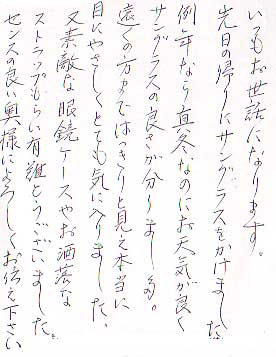 いつもお世話になります。
先日の帰りにサングラスをかけました。
例年なら真冬なのにお天気が良く
サングラスの良さが分りました。
遠くの方まではっきりと見え本当に
目にやさしくとても気に入りました。
又素敵な眼鏡ケースやお洒落な
ストラップもらい有難とうございました。
センスの良い奥様によろしくお伝え下さい